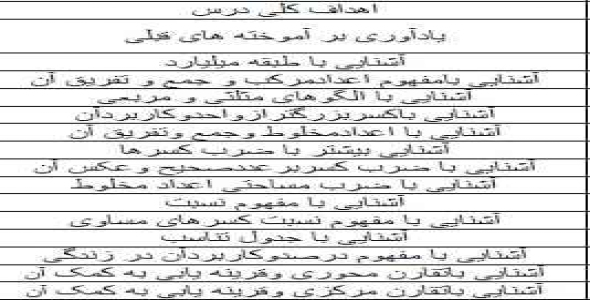 اهداف کلی درس
یادآوری بر آموخته های قبلی
آشنایی با طبقه میلیارد
آشنایی بامفهوم اعدادمرکب و جمع و تفریق آن
آشنایی با الگوهای مثلثی و مربعی
آشنایی باکسربزرگترازواحدوکاربردآن
آشنایی با اعدادمخلوط وجمع وتفریق آن
آشنایی بیشتر با ضرب کسرها
آشنایی با ضرب کسربرعددصحیح و عکس آن
آشنایی با ضرب مساحتی اعداد مخلوط
آشنایی با مفهوم نسبت
آشنایی با مفهوم نسبت کسرهای مساوی
آشنایی با جدول تناسب
آشنایی با مفهوم درصدوکاربردآن در زندگی
آشنایی باتقارن محوری وقرینه یابی به کمک آن
آشنایی باتقارن مرکزی وقرینه یابی به کمک آن